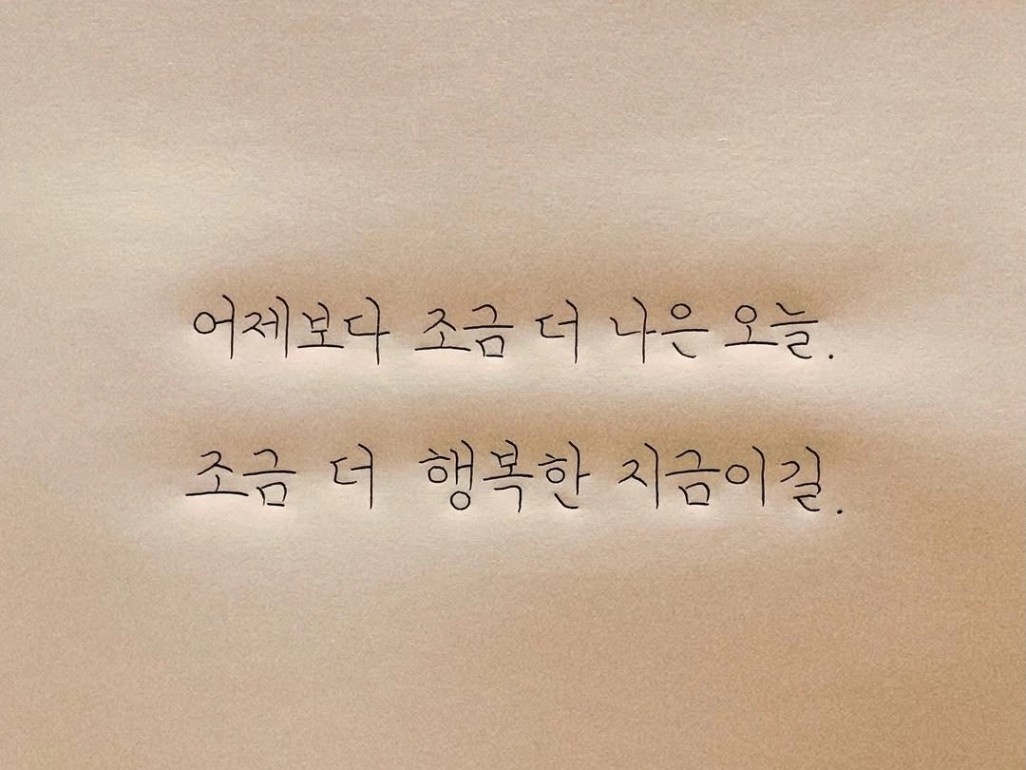 어제보다 조금 더 나은 오늘.
조금 더 행복한 지금이길.